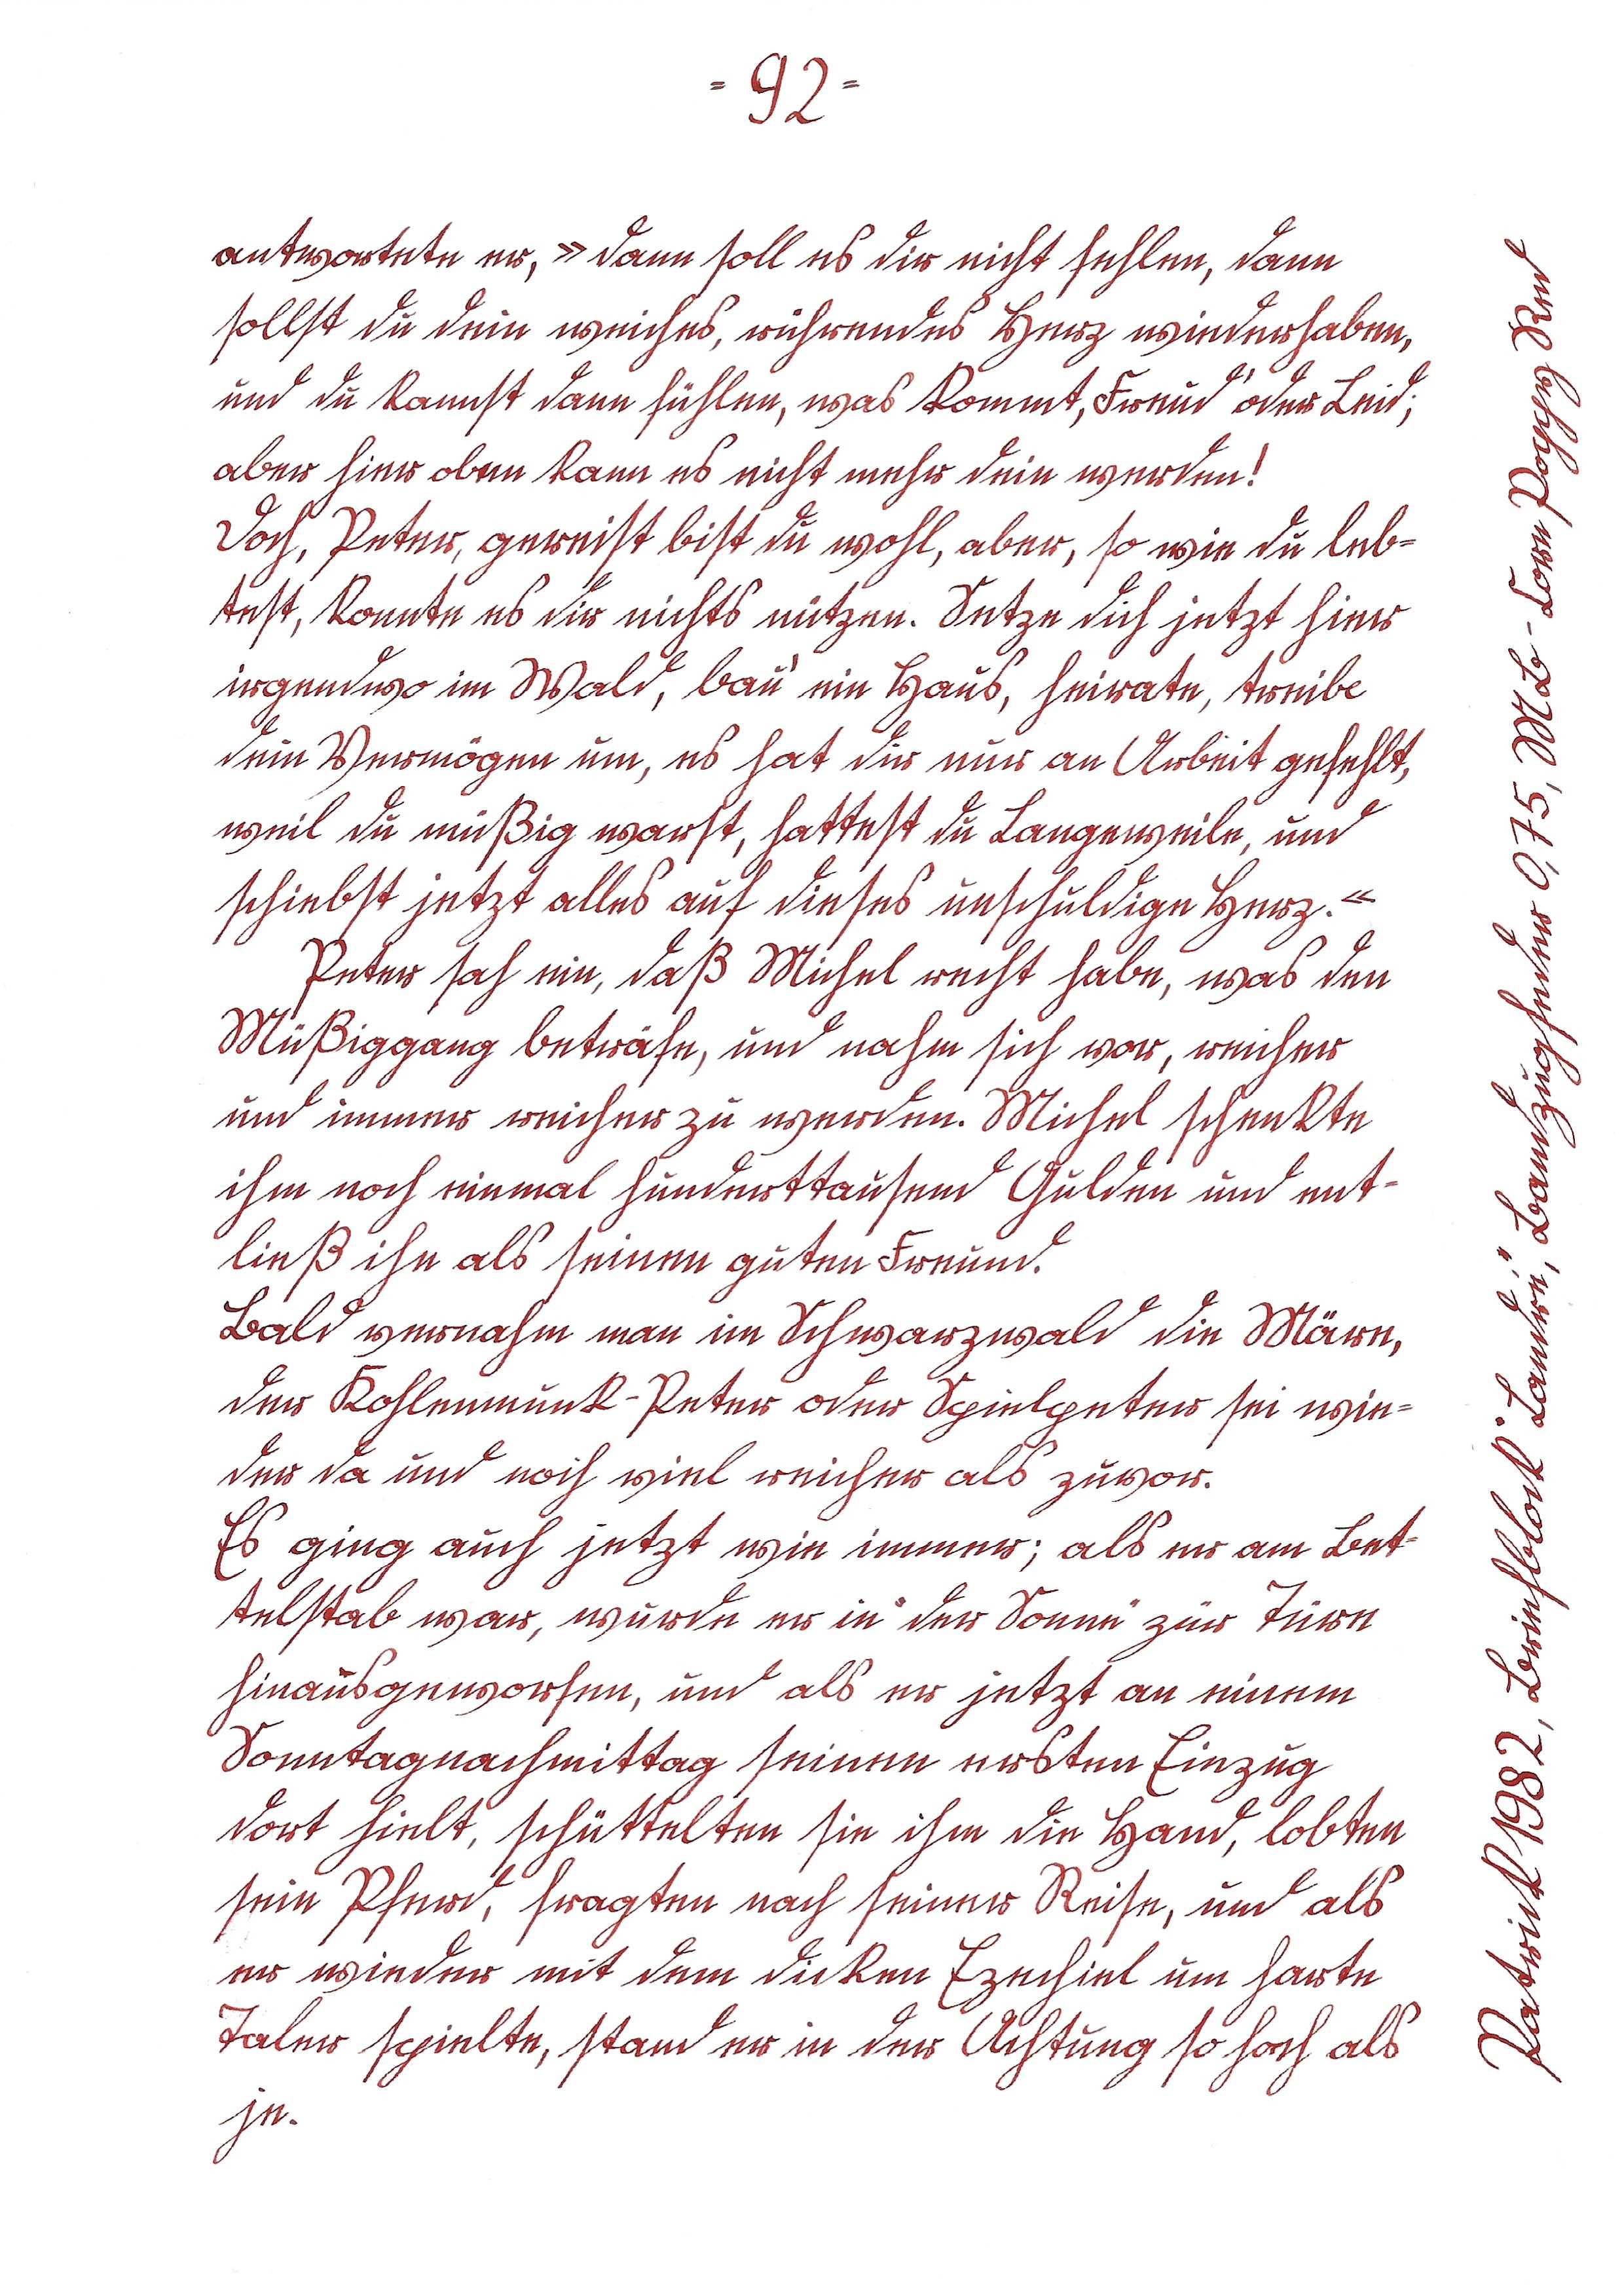 - 92 -
antwortete er, » dann soll es dir nicht fehlen, dann
sollst du dein weiches, rührendes Herz wiederhaben,
und du kannst dann fühlen, was kommt, Freud' oder Leid;
aber hier oben kann es nicht mehr dein werden!
Doch, Peter, gereist bist du wohl, aber, so wie du leb-
test, konnte es dir nichts nützen. Setze dich jetzt hier
irgendwo im Wald, bau' ein Haus, heirate, treibe
dein Vermögen um, es hat dir nur an Arbeit gefehlt,
weil du müßig warst, hattest du Langeweile, und
schiebst jetzt alles auf dieses unschuldige Herz.«
Peter sah ein, daß Michel recht habe, was den
Müßiggang beträfe, und nahm sich vor, reicher
und immer reicher zu werden. Michel schenkte
ihm noch einmal hunderttausend Gulden und ent-
ließ ihn als seinen guten Freund.
Bald vernahm man im Schwarzwald die Märe,
der Kohlenmunk-Peter oder Spielpeter sei wie-
der da und noch viel reicher als zuvor.
Es ging auch jetzt wie immer; als er am Bet-
telstab war, wurde er in "der Sonne" zur Türe
hinausgeworfen, und als er jetzt an einem
Sonntagnachmittag seinen ersten Einzug
dort hielt, schüttelten sie ihm die Hand, lobten
sein Pferd, fragten nach seiner Reise, und als
er wieder mit dem dicken Ezechiel um harte
Taler spielte, stand er in der Achtung so hoch als
je.
Patrick 1982, Briefblock "Landré", Bandzugfeder 0,75, MB - Lorn Poppy Red